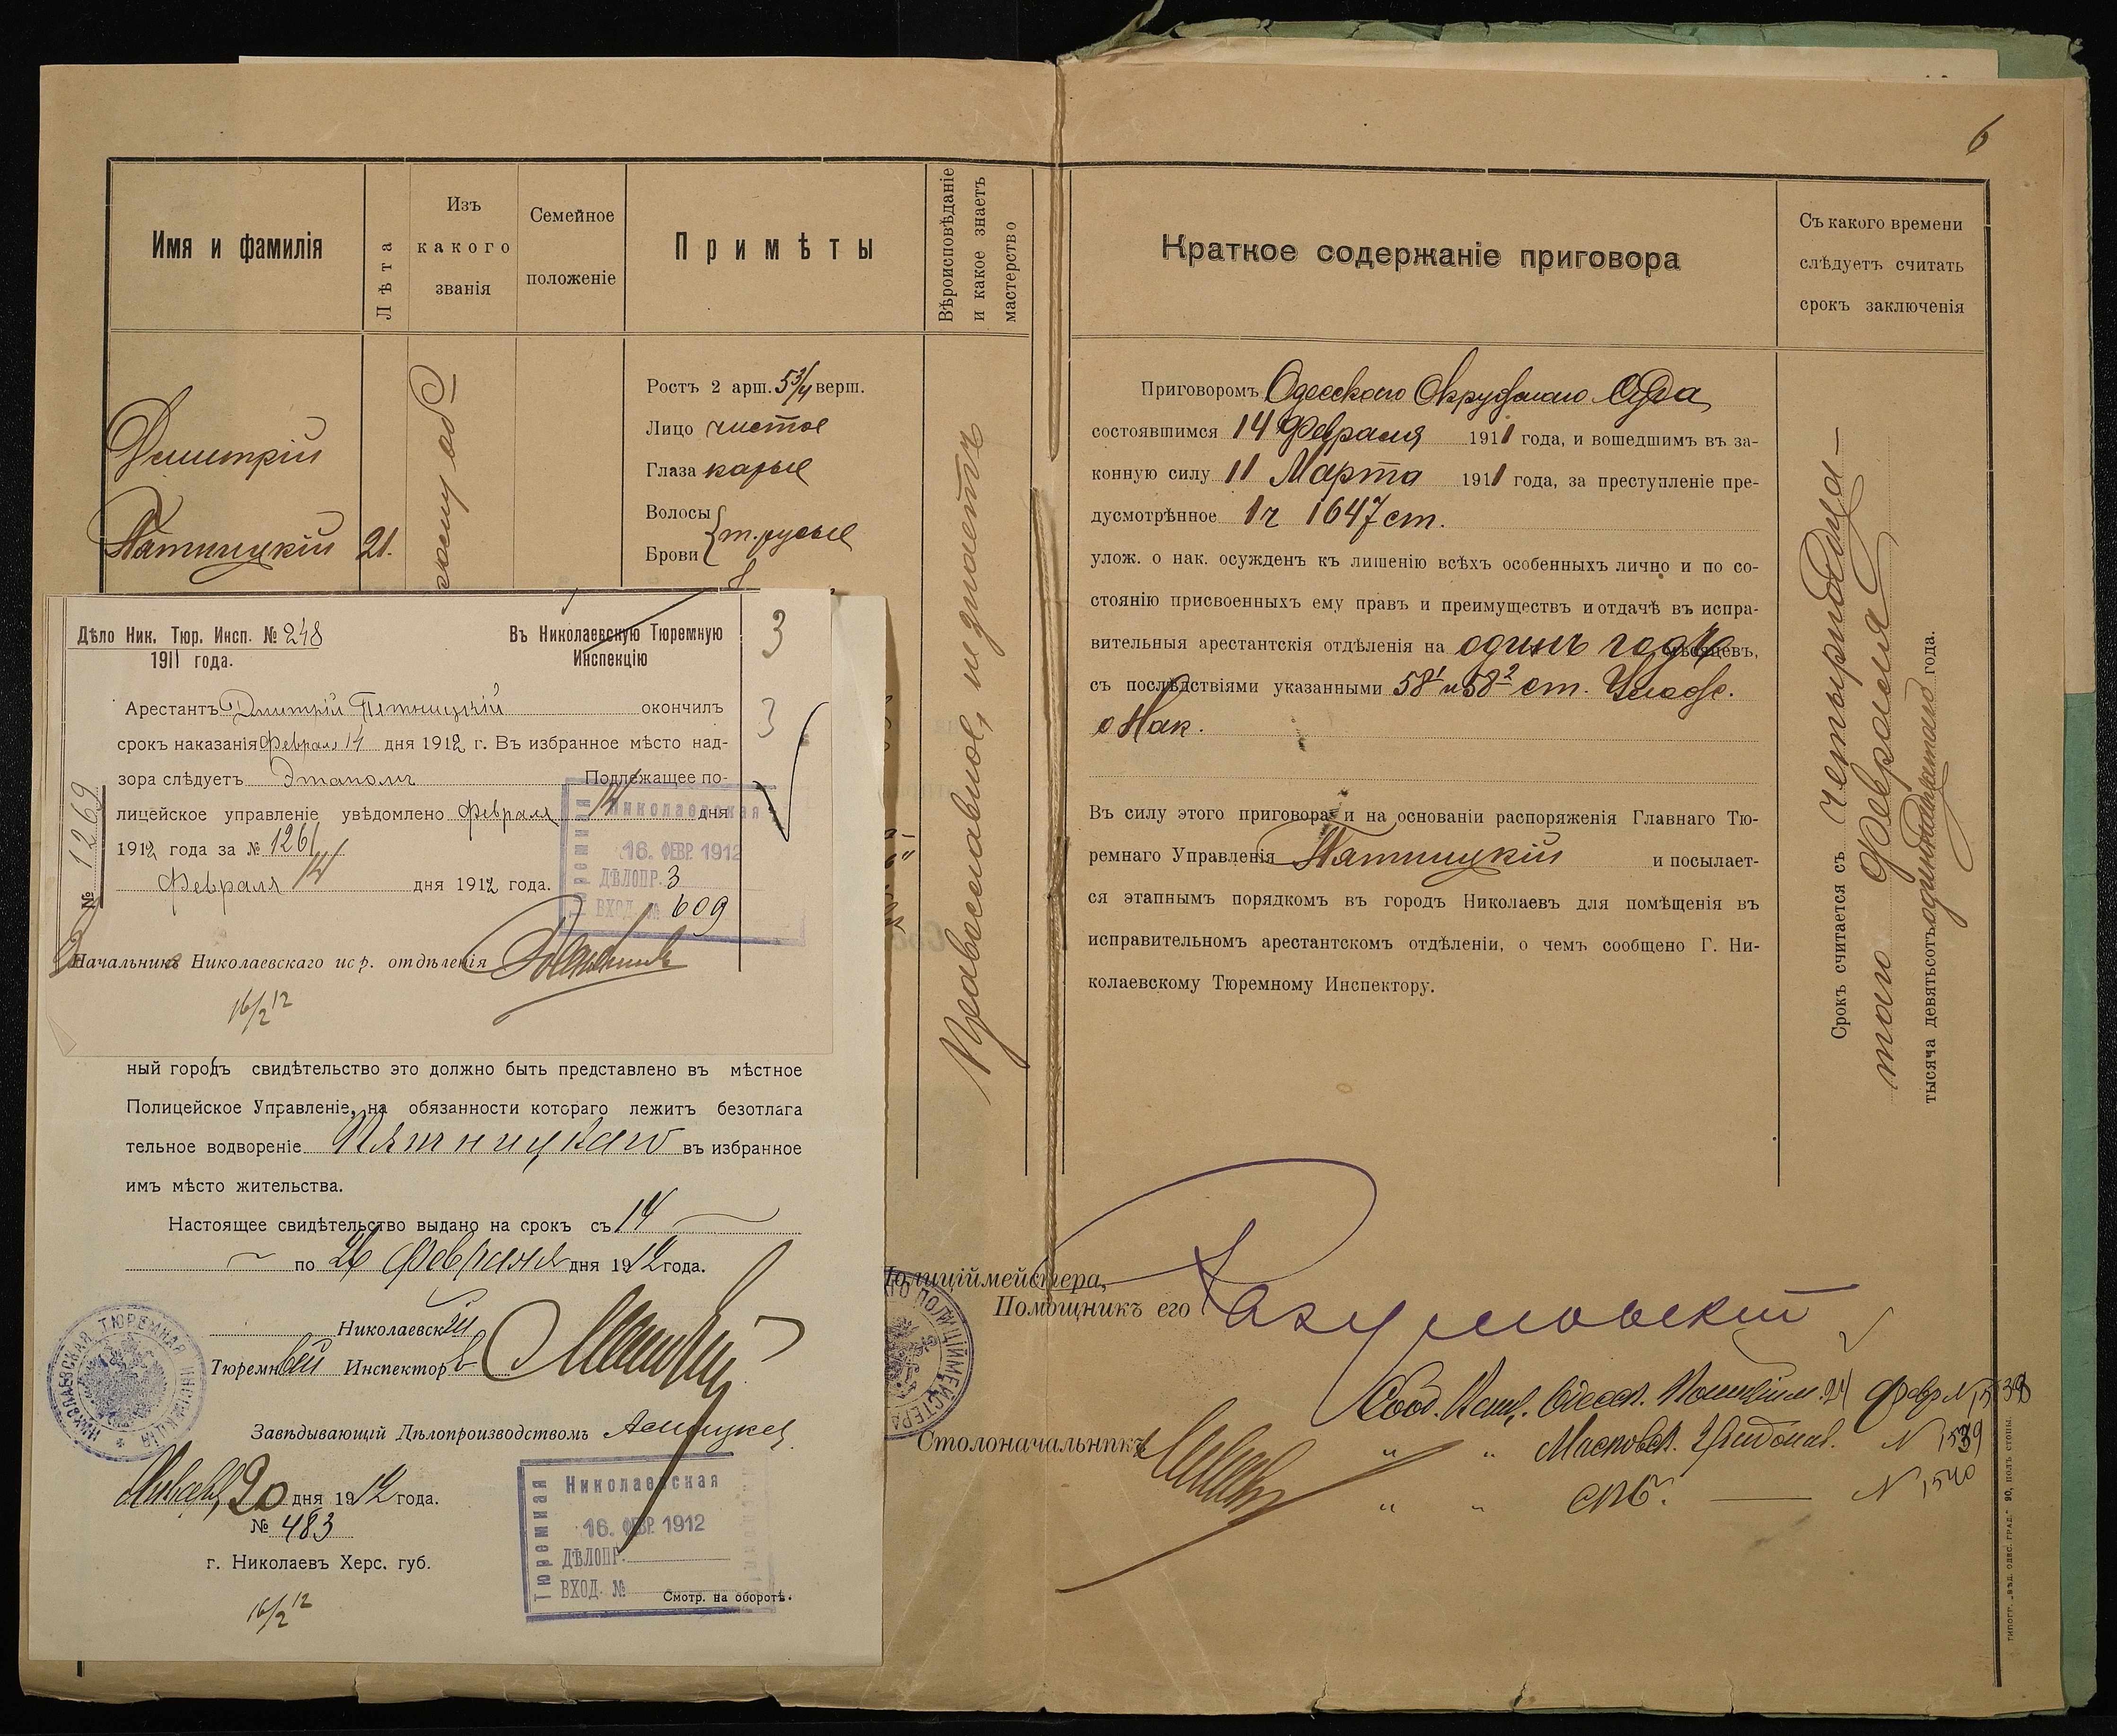 6
Имя и фамилія
Лѣта
Изъ
какого
званія
Семейное
положеніе
Примѣты
Вѣроисповѣданіе
и какое знаетъ
мастерство
Дмитрій
Пятницкій 21.
Ростъ 2 арш. 5¾ верш.
Лицо чистое
Глаза каріе
Волосы
Брови т. русые
Православное, не знаетъ
Краткое содержаніе приговора
Съ какого времени
слѣдуетъ считать
срокъ заключенія
Приговоромъ Одесского Окружного Суда
состоявшимся 14 Февраля 1911 года, и вошедшимъ въ за-
конную силу 11 Марта 1911 года, за преступленіе пре-
дусмотрѣнное 1 ч 1647 ст.
улож. о нак. осужденъ къ лишенію всѣхъ особенныхъ лично и по со-
стоянію присвоенныхъ ему правъ и преимуществъ и отдачѣ въ испра-
вительныя арестантскія отдѣленія на одинъ годъ мѣсяцевъ,
съ послѣдствіями указанными 58¹ и 58² ст. Улож.
о Нак.
Въ силу этого приговора и на основаніи распоряженія Главнаго Тю-
ремнаго Управленія Пятницкій и посылает-
ся этапнымъ порядкомъ въ городъ Николаевъ для помѣщенія въ
исправительномъ арестантскомъ отдѣленіи, о чемъ сообщено Г. Ни-
колаевскому Тюремному Инспектору.
Срокъ считается съ четырнадца-
таго Февраля
тысяча девятьсотъ одиннадцатаго года.
Полиціймейстера,
Помощникъ его Разумовскій
Столоначальникъ
Сооб. Одесск. Полиційм. 24 Февр N 1538
" " N 1539
" " СПб. N 1540
ПОЛИЦІЙМЕЙСТЕРА
типогр. „вѣд. одес. град." 90, полъ стопы.
Дѣло Ник. Тюр. Инсп. № 248
1911 года.
Въ Николаевскую Тюремную
Инспекцію
3
3
Арестантъ Дмитрій Пятницкій окончилъ
срокъ наказанія Февраля 14 дня 1912 г. Въ избранное мѣсто над-
зора слѣдуетъ этапомъ Подлежащее по-
лицейское управленіе увѣдомлено Февраля 14 дня
1912 года за № 1261
Февраля 14 дня 1912 года.
№ 1269
Николаевская
Тюремная
16. ФЕВР. 1912
ДѢЛОПР. 3
ВХОД. № 609
Начальникъ Николаевскаго испр. отдѣленія
16/2 12
ный городъ свидѣтельство это должно быть представлено въ мѣстное
Полицейское Управленіе, на обязанности котораго лежитъ безотлага
тельное водвореніе Пятницкаго въ избранное
имъ мѣсто жительства.
Настоящее свидѣтельство выдано на срокъ съ 14
по 26 Февраля дня 1912 года.
Николаевскій
Тюремный Инспекторъ
НИКОЛАЕВСКАЯ ТЮРЕМНАЯ ИНСПЕКЦІЯ
Завѣдывающій Дѣлопроизводствомъ
Января 20 дня 1912 года.
№ 483
г. Николаевъ Херс. губ.
16/2 12
Николаевская
Тюремная
16. ФЕВР. 1912
ДѢЛОПР.
ВХОД. №
Смотр. на оборотѣ.